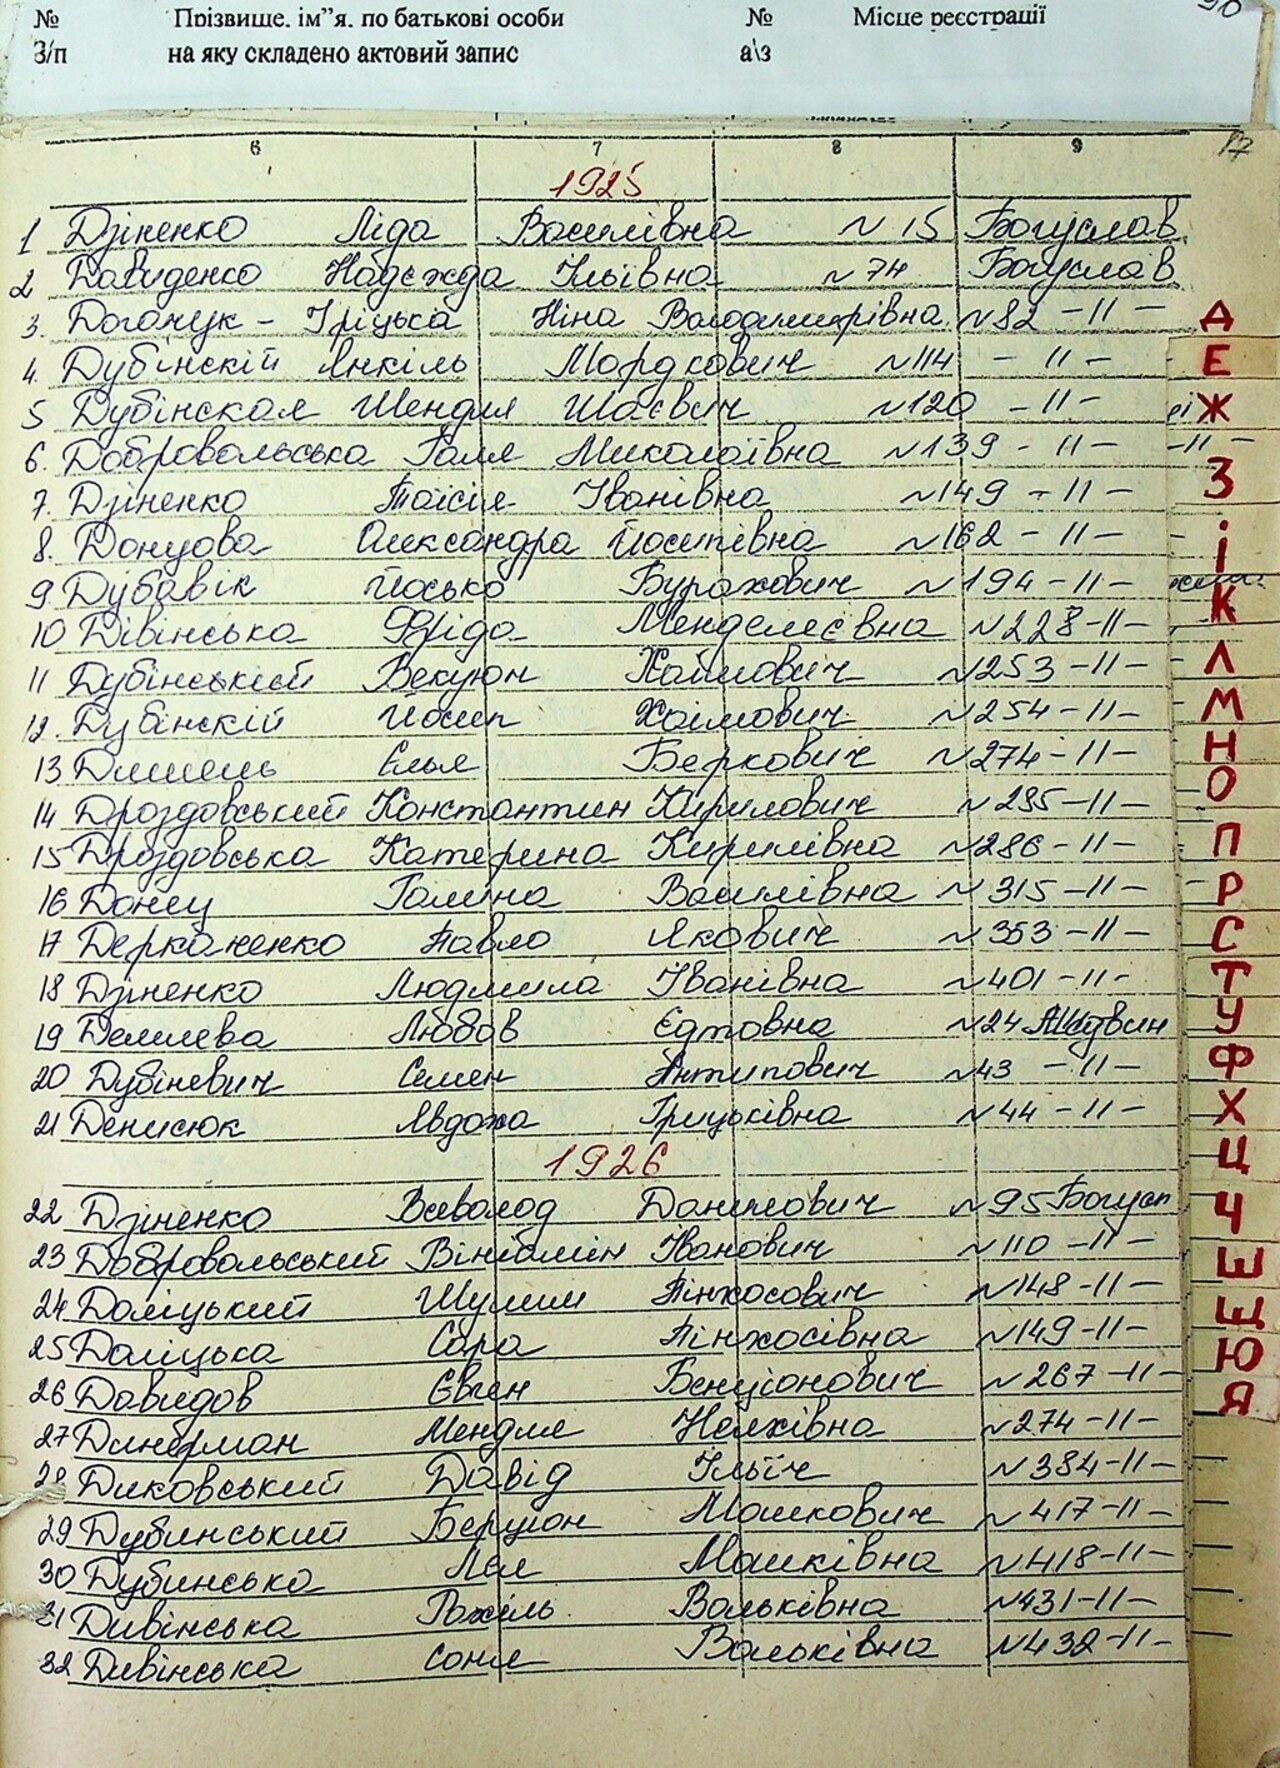 № Прізвище, ім"я, по батькові особи № Місце реєстрації
З/п на яку складено актовий запис а\з
6 7 8 9 17
1925
1 Дзіненко Ліда Василівна №15 Богуслав
2 Давиденко Надєжда Ільївна №74 Богуслав
3. Догонук - Гріцька Ніна Володимирівна №82 -11-
4. Дубінскій Янкіль Мордкович №114 -11-
5 Дубінская Шендля Шаєвич №120 -11-
6. Добровольська Галя Миколаївна №139 -11-
7. Дзіненко Таісія Іванівна №149 -11-
8. Донцова Олександра Йосипівна №162 -11-
9 Дубавік Йосько Бурахович №194 -11-
10 Дівінська Фріда Менделеєвна №228 -11-
11 Дубінській Векуюн Хаймович №253 -11-
12. Дубінскій Йосип Хаімович №254 -11-
13 Елья Беркович №274 -11-
14 Дроздовський Константин Кирилович №285 -11-
15 Дроздовська Катерина Кирилівна №286 -11-
16 Донец Галина Василівна №315 -11-
17 Деркаченко Павло Якович №353 -11-
18 Дзіненко Людмила Іванівна №401 -11-
19 Демиева Любов №24
20 Дубіневич Семен Антипович №43 -11-
21 Денисюк Явдоха Грицьківна №44 -11-
1926
22 Дзіненко Всеволод Данилович №95 Богусл
23 Добровольський Вініамін Іванович №110 -11-
24 Доліцький Шулим Пінхосович №148 -11-
25 Доліцька Сара Пінхосівна №149 -11-
26 Давидов Євген Бенціонович №267 -11-
27 Динерман Мендля Нелхівна №274 -11-
28 Диковський Давід Ільїч №384 -11-
29 Дубинський Берціон Мошкович №417 -11-
30 Дубинська Лея Мошківна №418 -11-
31 Дивінська Рахіль Вольківна №431 -11-
32 Дивінська Соня Вольківна №432 -11-
Д
Е
Ж
З
і
К
Л
М
Н
О
П
Р
С
Т
У
Ф
Х
Ц
Ч
Ш
Щ
Ю
Я